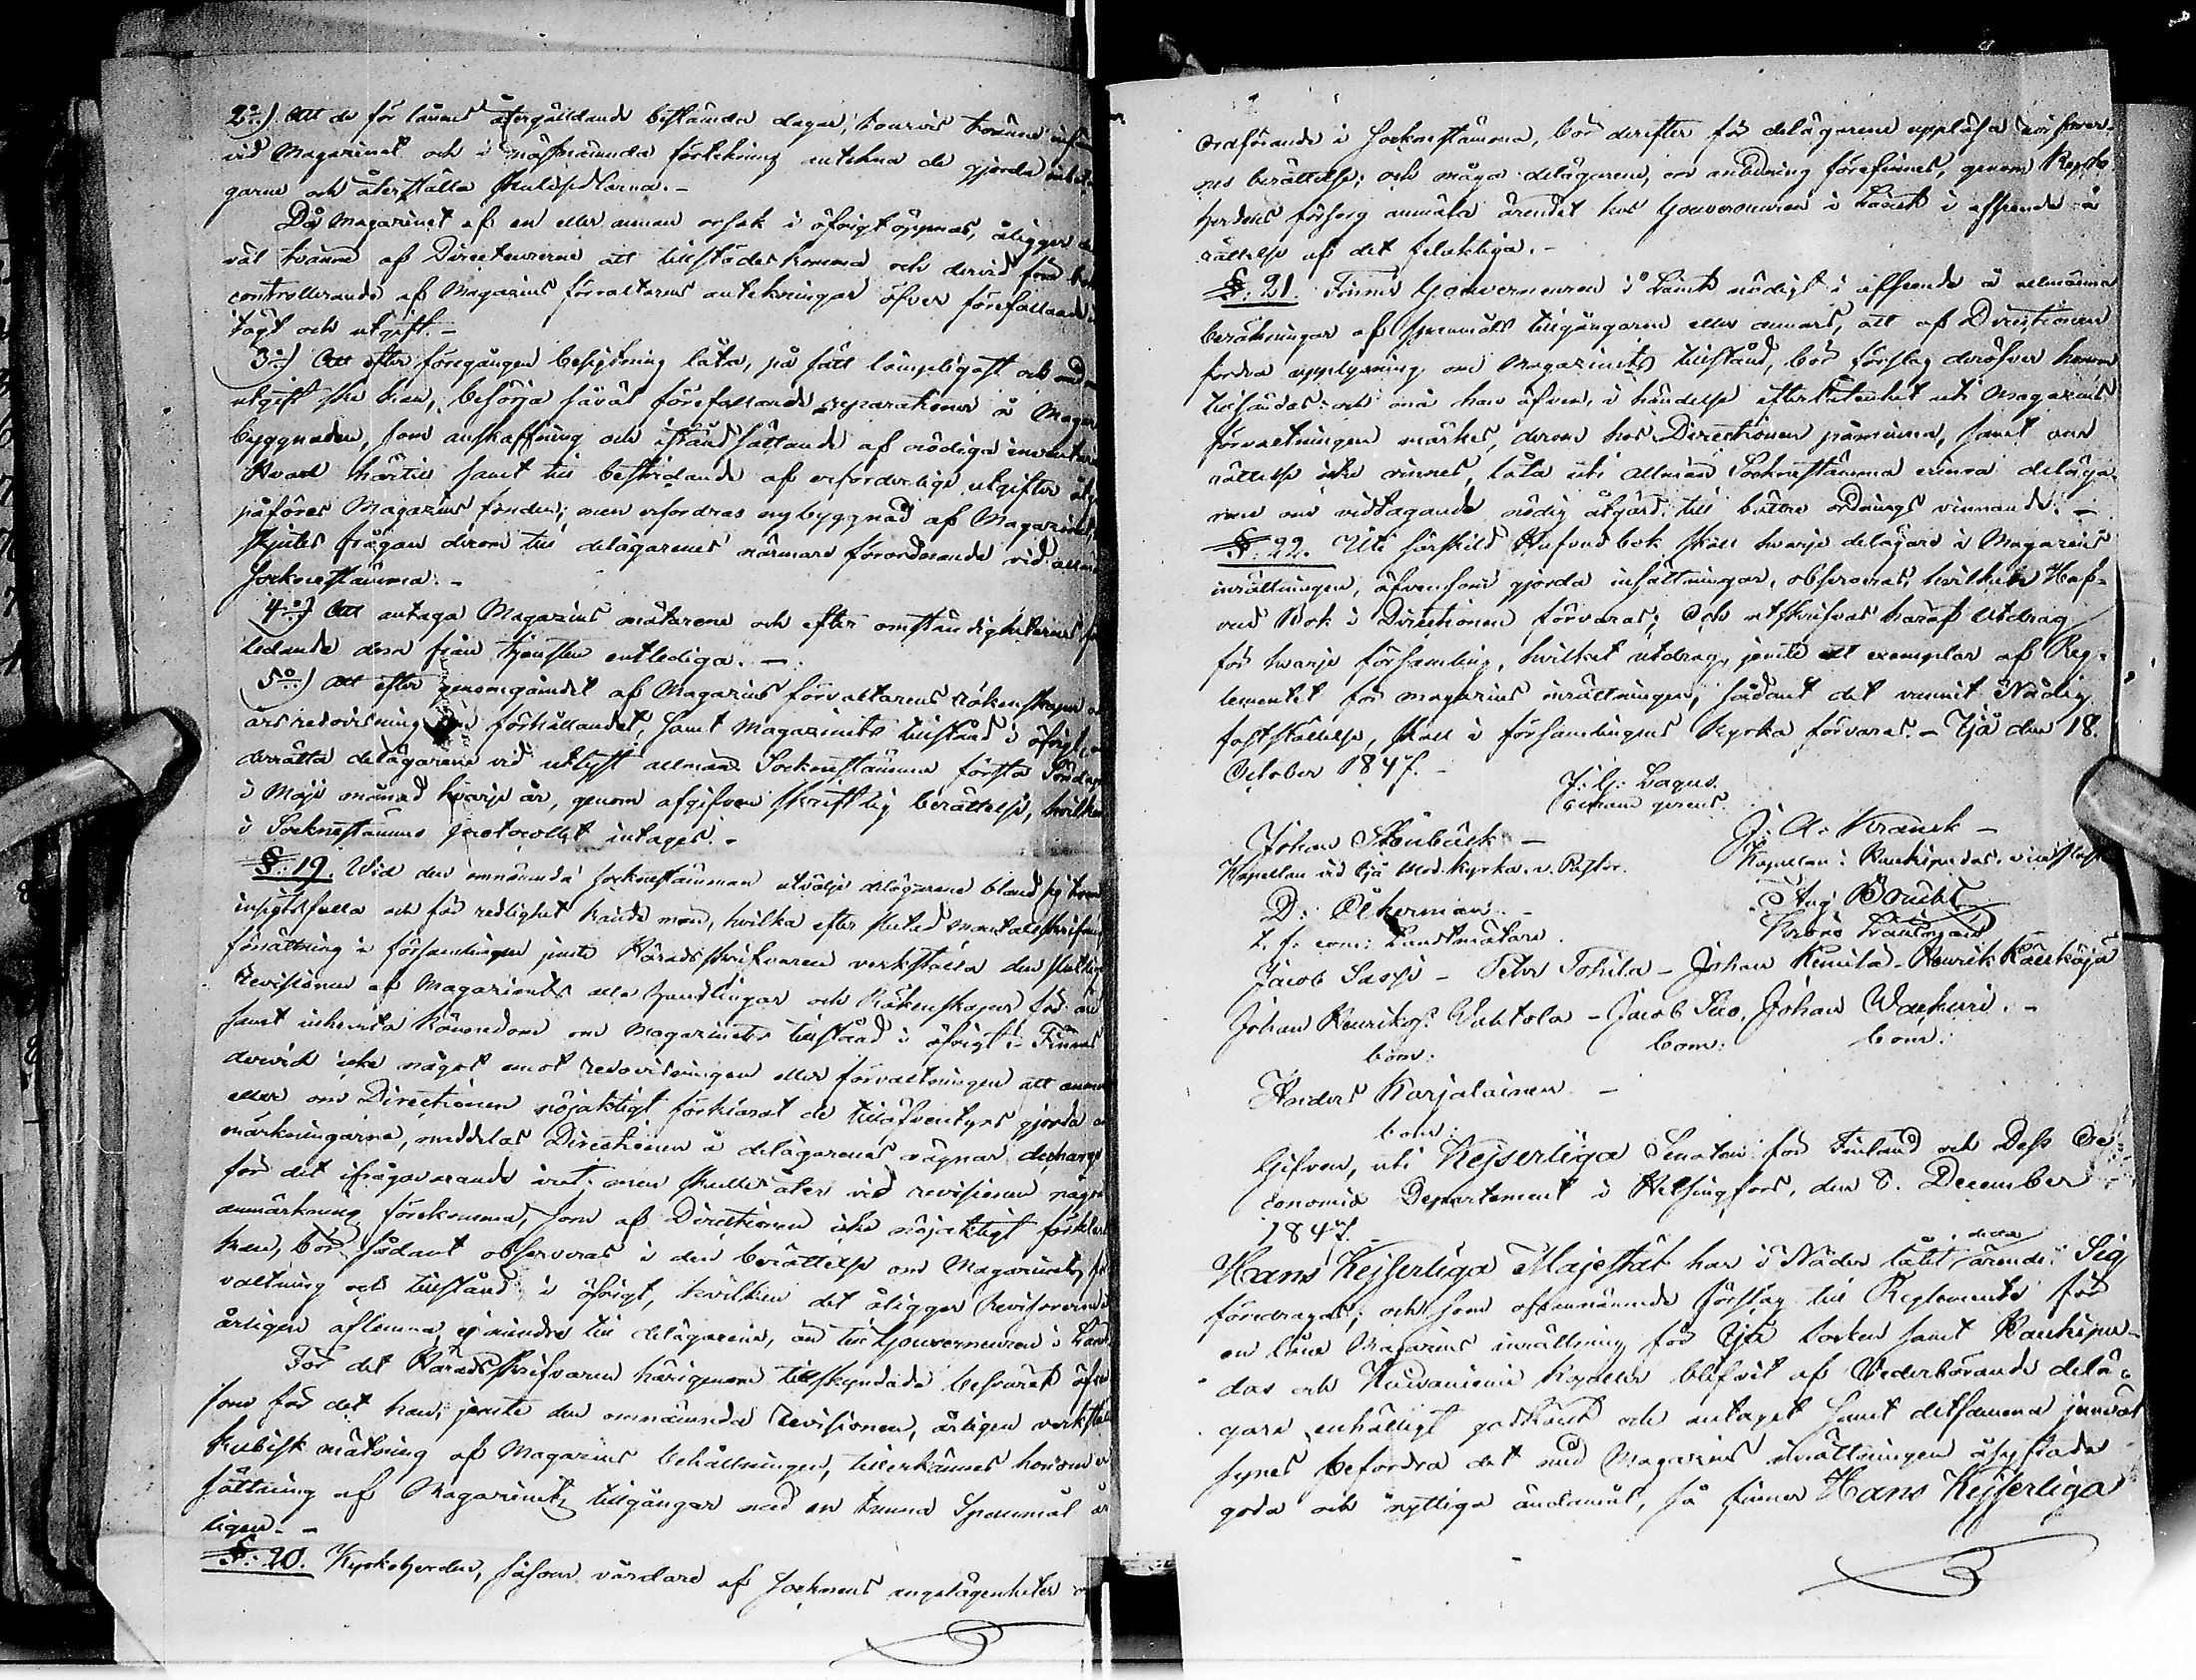 2:o) Att de för lånens återgäldande bestämda dagar, tourvis tvänne
vid Magazinet och i nästnämnda förtekning antekna de gjorda
garne och återställa skuldsedlarna. -
Då Magazinet af en eller annan orsak i öfrigt öppnas, åligger
väl tvänne af Directeurerne att tillstädeskomma och dervid föra
controllerande af Magazins förvaltarens antekningar öfver förefallande
tägt och utgift. -
3:o) Att efter föregången besigtning låta, på sätt lämpligast och med
utgift ske kan, besörja såväl förefallande reparationer å
byggnaden, som anskaffning och iståndsättande af nödiga
Hvad härtill samt till bestridande af erforderlige utgifter
påföres Magazins fonden; men erfordras nybyggnad af Magazinet,
skjutes frågan derom till delägarenes närmare förordnande vid
Sockenstämma. -
4:o) Att antaga Magazins mätarene och efter omständigheternes
ledande dem från tjensten entlediga. -
5:o) Att efter genomgåendet af Magazins förvaltarens räkenskaper
årsredovisning förhållandet, samt Magazinets tillstånd i öfrigt,
derrätta delägarene vid utlyst allmän Sockenstämma första Söndagen
i Maji månad hvarje år, genom afgifven skriftlig berättelse, hvilken
i Sockenstämmo protocollet intages. -
§. 19. Wid den omnämnda sockenstämman utvälje delägarene bland sig
insigtsfulla och för redlighet kända män, hvilka efter slutad mantalsskrifnings
förrättning i församlingen jemte Häradsskrifvaren verkställa den slutliga
revisionen af Magazinets alla handlingar och Räkenskaper för
samt inhemta kännedom om Magazinets tillstånd i öfrigt. Finnes
dervid icke något emot redovisningen eller förvaltningen att
eller om Directionen nöjaktigt förklarat de tilläfventyrs gjorda
märkningarna, meddelas Directionen å delägarenes vägnar decharge
för det ifrågavarande året; men skulle åter vid revisionen någon
anmärkning förekomma, som af Directionen icke nöjaktigt
kan, bör sådant observeras i den berättelse om Magazinets
valtning och tillstånd i öfrigt, hvilken det åligger Revisorerne
årligen aflemna, ej mindre till delägarene, än till Gouverneuren i
För det Häradsskrifvaren härigenom tillskyndade besväret
som för det han, jemte den omnämnda revisionen, årligen
kubisk mätning af Magazins behållningen, tillerkännes honom
sättning af Magazinets tillgångar med en tunna Spannmål
ligen. -
§. 20. Kyrkoherden, såsom vårdare af Socknens angelägenheter
ordförande i Sockenstämma, bör derefter för delägarene uppläsa
nes berättelse; och måga delägarene, om anledning förefinnes, genom
herdens försorg anmäla ärendet hos Gouverneuren i Länet i afseende å
rättelse af det felaktiga. -
§. 21. Finner Gouverneuren i Länet nödigt i afseende å allmänna
beräkningar af spannmåls tillgångarne eller annars, att af Directionen
fordra upplysning om Magazinets tillstånd, bör förslag deröfver honom
tillsändas; och må han äfven, i händelse efterlåtenhet uti Magazins
förvaltningen märkes, derom hos Directionen påminna, samt om
rättelse icke vinnes, låta uti allmän Sockenstämma erinra delägar-
rene om vidtagande nödig åtgärd till bättre ordnings vinnande. -
§. 22. Uti särskild Hufvudbok skall hvarje delägare i Magazins
inrättningen, äfvensom gjorda insättningar, observeras, hvilken Huf-
vud Bok i Directionen förvaras; Och utskrifves häraf utdrag
för hvarje församling, hvilket utdrag, jemte ett exemplar af Reg-
lementet för magazins inrättningen, sådant det vunnit Nådig
fastställelse, skall i församlingens Kyrka förvaras. - Ijå den 18.
October 1847. -
J. G. Lagus.
Johan Stenbäck -
J. A. Kranck -
Kapellan vid Ijå Mod. Kyrka, v. Pastor.
Kapellan i
D. Åkerman. -
t. f. com: Landtmätare.
Krono Länsman
Jacob Saspi - Petter Tohila - Johan Kunila - Henrik
Johan Henrikss. Wahtola - Jacob Iso, Johan Waehuri. -
bom: bom: bom:
Anders Karjalainen -
bom:
Gifven, uti Kejserliga Senaten för Finland och Dess Oe-
conomie Departement i Helsingfors, den 8. December
1847. -
detta
Hans Kejserliga Majestät har i Nåder låtit ärende Sig
föredragas; och som ofvannämnde förslag till Reglemente för
en låne Magazins inrättning för Ijå socken samt Haukipu-
das och Kuivaniemi Kapeller blifvit af Vederbörande delä-
gare enhälligt godkändt och antaget samt detsamma jemväl
synes befordra det med Magazins inrättningen åsyftade
goda och nyttiga ändamål, så finner Hans Kejserliga